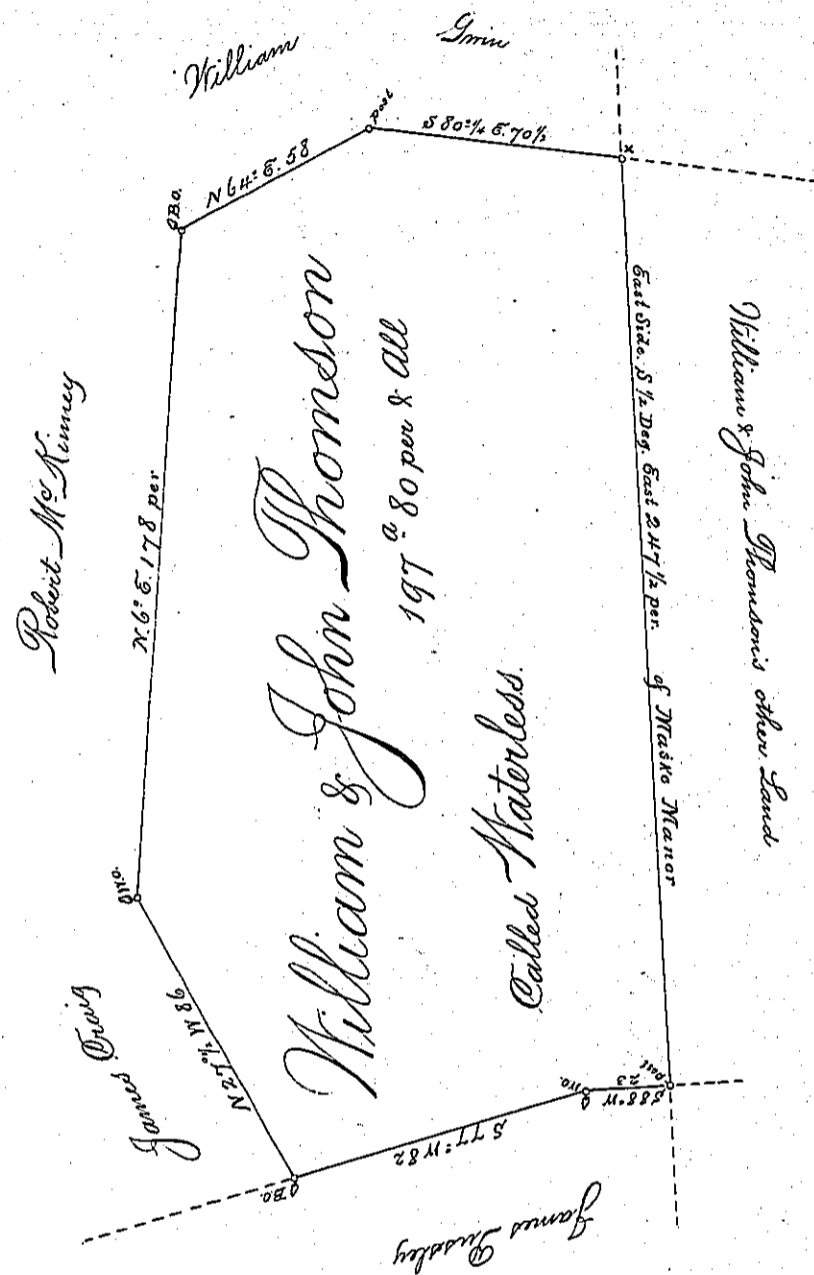 William Grin
post
S 80°¼ E. 70½
N 64° E. 58
B.O.
x
Robert McKinney
N. 6° E. 178 per
William & John Thomson
197 a - 80 per & all
Called Waterless.
East Side. S ½ Deg. East 247½ per. of Masko Manor
William & John Thomson's other Land
W.O.
James Craig
N 27°½ W 86
B.O.
S 77° W 82
W.O.
S 88° W 23
post
James